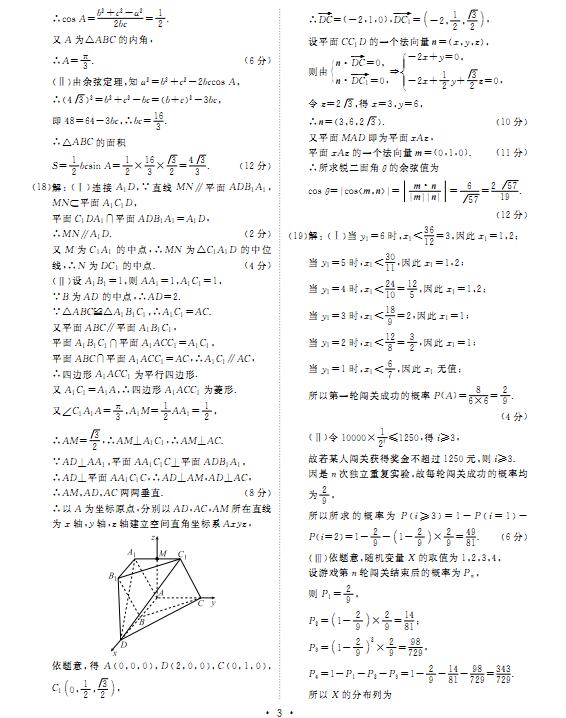 ∴cos A=(b²+c²-a²)/(2bc)=1/2.
又 A 为△ABC 的内角,
∴A=π/3. (6 分)
(Ⅱ)由余弦定理,知 a²=b²+c²-2bccos A,
∴(4√3)²=b²+c²-bc=(b+c)²-3bc,
即 48=64-3bc,∴bc=16/3.
∴△ABC 的面积
S=1/2bcsin A=1/2×16/3×√3/2=4√3/3. (12 分)
(18)解:(Ⅰ)连接 A₁D,∵直线 MN∥平面 ADB₁A₁,
MN⊂平面 A₁C₁D,
平面 C₁DA₁∩平面 ADB₁A₁=A₁D,
∴MN∥A₁D. (2 分)
又 M 为 C₁A₁ 的中点,∴MN 为△C₁A₁D 的中位
线,∴N 为 DC₁ 的中点. (4 分)
(Ⅱ)设 A₁B₁=1,则 AA₁=1,A₁C₁=1,
∵B 为 AD 的中点,∴AD=2.
∵△ABC≌△A₁B₁C₁,∴A₁C₁=AC.
又平面 ABC∥平面 A₁B₁C₁,
平面 A₁B₁C₁∩平面 A₁ACC₁=A₁C₁,
平面 ABC∩平面 A₁ACC₁=AC,∴A₁C₁∥AC,
∴四边形 A₁ACC₁ 为平行四边形.
又 A₁C₁=A₁A,∴四边形 A₁ACC₁ 为菱形.
又∠C₁A₁A=π/3,A₁M=1/2AA₁=1/2,
∴AM=√3/2,∴AM⊥A₁C₁,∴AM⊥AC.
∵AD⊥AA₁,平面 AA₁C₁C⊥平面 ADB₁A₁,
∴AD⊥平面 AA₁C₁C,∴AD⊥AM,AD⊥AC,
∴AM,AD,AC 两两垂直. (8 分)
∴以 A 为坐标原点,分别以 AD,AC,AM 所在直线
为 x 轴,y 轴,z 轴建立空间直角坐标系 Axyz,
z
A₁ M C₁
B₁
A
C y
B
D
x
依题意,得 A(0,0,0),D(2,0,0),C(0,1,0),
C₁(0,1/2,√3/2),
∴DC=(-2,1,0),DC₁=(-2,1/2,√3/2),
设平面 CC₁D 的一个法向量 n=(x,y,z),
则由{n·DC=0, n·DC₁=0, ⇒{-2x+y=0, -2x+1/2y+√3/2z=0,
令 z=2√3,得 x=3,y=6,
∴n=(3,6,2√3). (10 分)
又平面 MAD 即为平面 xAz,
平面 xAz 的一个法向量 m=(0,1,0). (11 分)
∴所求锐二面角 θ 的余弦值为
cos θ=|cos⟨m,n⟩|=|m·n/|m||n||=6/√57=2√57/19.
(12 分)
(19)解:(Ⅰ)当 y₁=6 时,x₁<36/12=3,因此 x₁=1,2;
当 y₁=5 时,x₁<30/11,因此 x₁=1,2;
当 y₁=4 时,x₁<24/10=12/5,因此 x₁=1,2;
当 y₁=3 时,x₁<18/9=2,因此 x₁=1;
当 y₁=2 时,x₁<12/8=3/2,因此 x₁=1;
当 y₁=1 时,x₁<6/7,因此 x₁ 无值;
所以第一轮闯关成功的概率 P(A)=8/(6×6)=2/9.
(4 分)
(Ⅱ)令 10000×1/2ⁱ≤1250,得 i≥3,
故若某人闯关获得奖金不超过 1250 元,则 i≥3.
因是 n 次独立重复实验,故每轮闯关成功的概率均
为2/9,
所以所求的概率为 P(i≥3)=1-P(i=1)-
P(i=2)=1-2/9-(1-2/9)×2/9=49/81. (6 分)
(Ⅲ)依题意,随机变量 X 的取值为 1,2,3,4,
设游戏第 n 轮闯关结束后的概率为 Pₙ,
则 P₁=2/9,
P₂=(1-2/9)×2/9=14/81;
P₃=(1-2/9)²×2/9=98/729,
P₄=1-P₁-P₂-P₃=1-2/9-14/81-98/729=343/729.
所以 X 的分布列为
· 3 ·